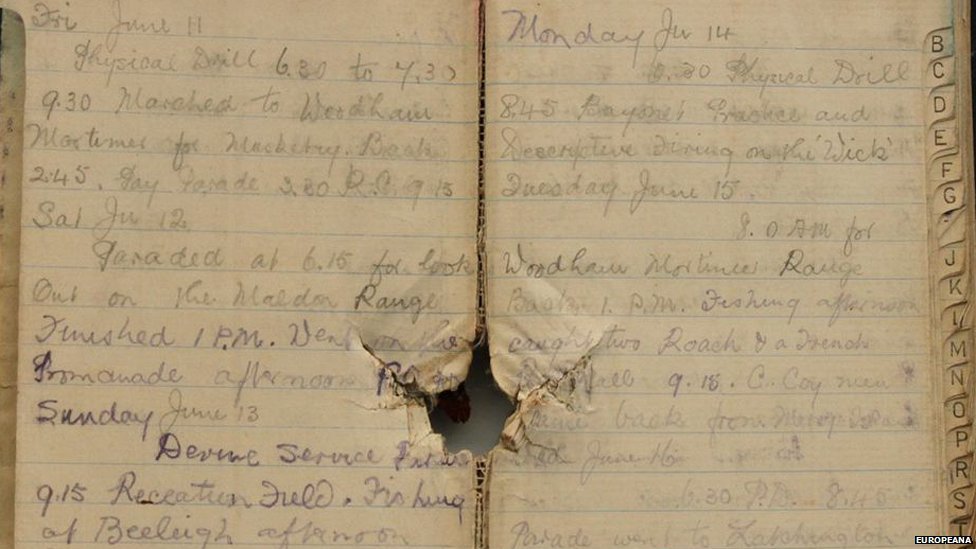 Fri June 11
Physical Drill 6.30 to 7.30
9.30 Marched to Woodham
Mortimer for Musketry. Back
2.45. Pay Parade 3.30 R.C. 9.15
Sat Ju 12
Paraded at 6.15 for look
Out on the Maldon Range
Finished 1 P.M. Went on the
Promanade afternoon
Sunday June 13
Devine Service
9.15 Receation Field. Fishing
at Beeleigh afternoon
Monday Ju 14
6.30 Physical Drill
8.45 Bayonet Practice and
Descriptive Firing on the 'Wick'
Tuesday June 15.
8.0 AM for
Woodham Mortimer Range
Back 1. P.M. Fishing afternoon
caught two Roach & a Tench
9.15. C. Coy men
came back from
June 16
6.30 P.D. 8.45
Parade went to Latchington
B
C
D
E
F
G
J
K
L
M
N
O
P
R
S
T
EUROPEANA